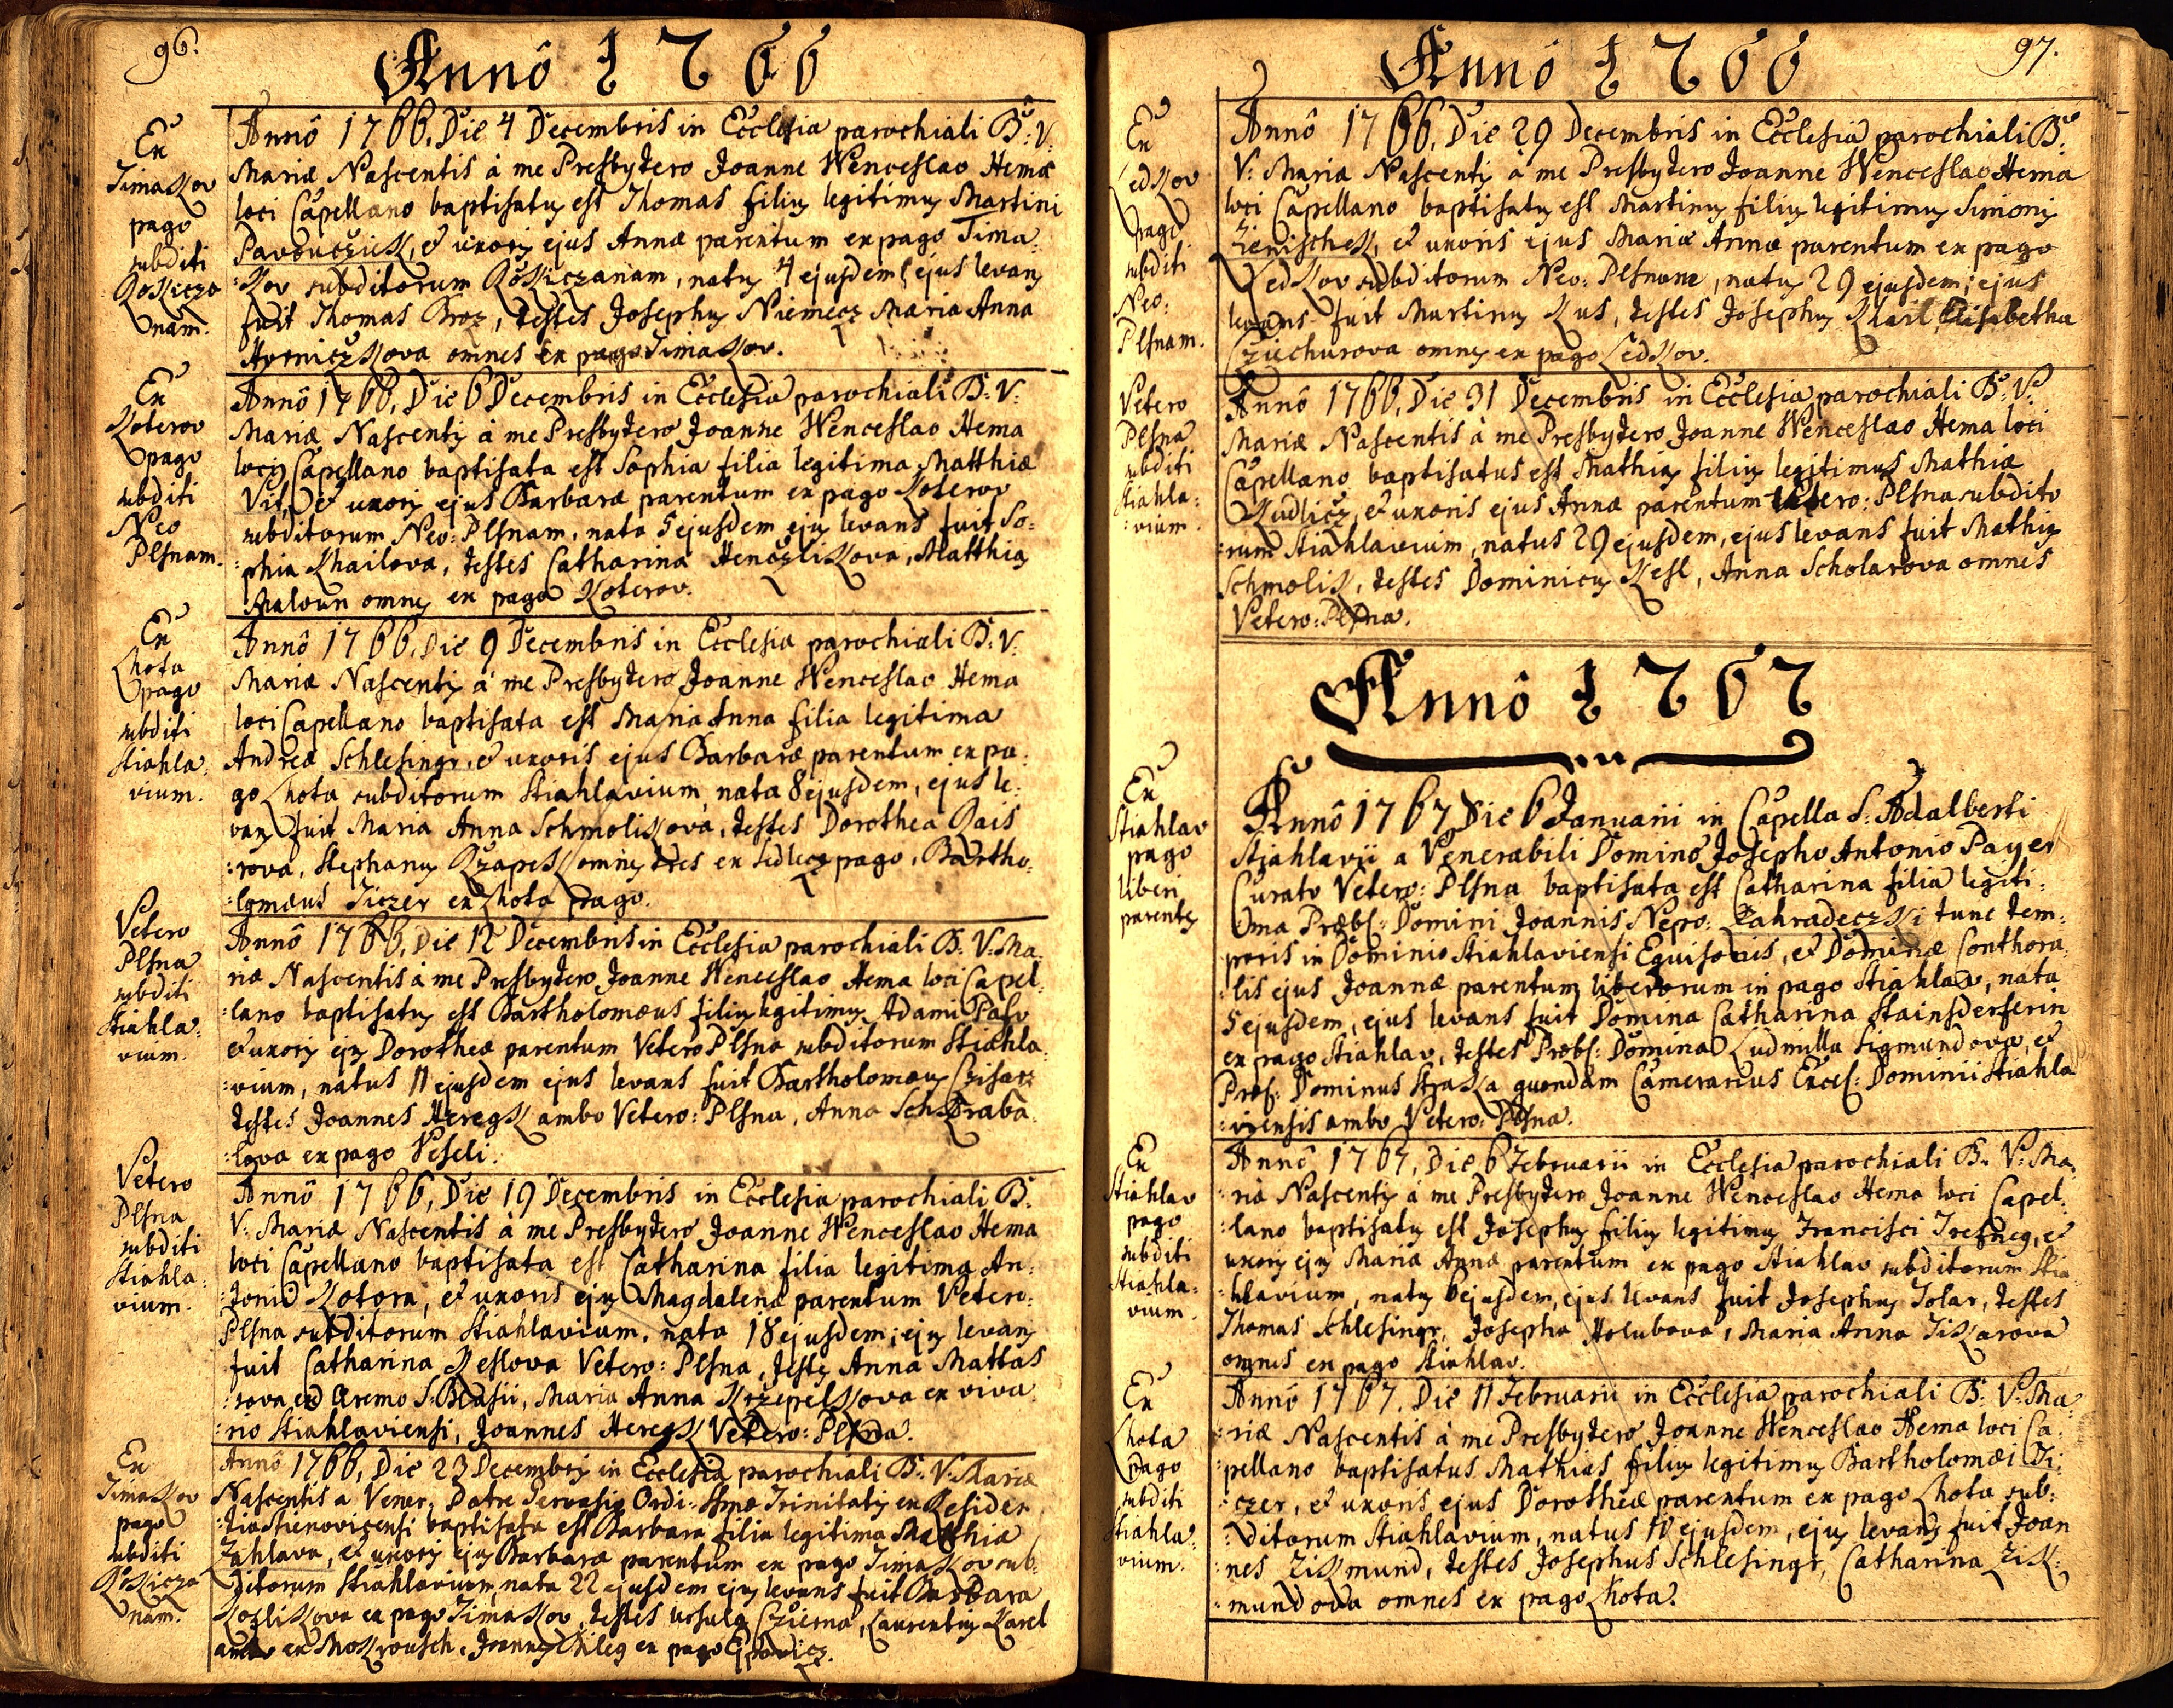 96.
Annô 1766
Ex
Timakov
pago
subditi
Rokicza
nam.
Annô 1766. Die 4 Decembris in Ecclesia parochiali B: V:
Mariæ Nascentis à me Presbytero Joanne Wenceslao Hema
loci Capellano baptisatus est Thomas filius legitimus Martini
et uxoris ejus Annæ parentum ex pago Tima:
:kov subditorum Rokiczanam, natus 4 ejusdem, ejus levans
fuit Thomas Broz, testes Josephus Niemecz Maria Anna
Hverniczkova omnes ex pago Timakov.
Ex
Koterov
pago
subditi
Neo
Plsnam.
Annô 1766, Die 6 Decembris in Ecclesia parochiali B: V:
Mariæ Nascentis à me Presbytero Joanne Wenceslao Hema
loci Capellano baptisata est Sophia filia legitima Matthiæ
Vit, et uxoris ejus Barbaræ parentum ex pago Koterov
subditorum Neo: Plsnam, nata 5 ejusdem ejus levans fuit So:
:phia Khailova, testes Catharina Henczlikova, Matthias
Maloun omnes ex pago Koterov.
Ex
Lhota
pago
subditi
Stiahla:
vium.
Annô 1766, Die 9 Decembris in Ecclesia parochiali B: V:
Mariæ Nascentis à me Presbytero Joanne Wenceslao Hema
loci Capellano baptisata est Maria Anna filia legitima
Andreæ Schlesingr, et uxoris ejus Barbaræ parentum ex pa:
go Lhota subditorum Stiahlavium, nata 8 ejusdem, ejus le:
vans fuit Maria Anna Schmolikova, testes Dorothea Rais
:rova, Stephanus Rzapek omnes tres ex Sedlecz pago, Bartho:
:lomæus Ticzer ex Lhota pago.
Vetero
Plsna
subditi
Stiahla:
vium.
Annô 1766, Die 12 Decembris in Ecclesia parochiali B: V: Ma:
riæ Nascentis à me Presbytero Joanne Wenceslao Hema loci Capel:
:lano baptisatus est Bartholomæus filius legitimus Adami
et uxoris ejus Dorotheæ parentum Vetero Plsna subditorum Stiahla:
:vium, natus 11 ejusdem ejus levans fuit Bartholomæus Czisarz
testes Joannes Heregk ambo Vetero: Plsna, Anna Schkraba
:lova ex pago Veseli.
Vetero
Plsna
subditi
Stiahla:
vium.
Annô 1766, Die 19 Decembris in Ecclesia parochiali B:
V: Mariæ Nascentis à me Presbytero Joanne Wenceslao Hema
loci Capellano baptisata est Catharina filia legitima An:
:tonii Kotora, et uxoris ejus Magdalenæ parentum Vetero:
Plsna subditorum Stiahlavium, nata 18 ejusdem; ejus levans
fuit Catharina Keslova Vetero: Plsna, testes Anna Mattas
:rova ex Eremo S: Blasii, Maria Anna Krzepelkova ex viva
:rio Stiahlaviensi, Joannes Heregk Vetero: Plsna.
Ex
Timakov
pago
subditi
Rokicza
nam.
Annô 1766, Die 23 Decembris in Ecclesia parochiali B: V: Mariæ
Nascentis a Vener. Patre Gervasio Ordi: Ssmæ Trinitatis ex Residen
:tia Stienovicensi baptisata est Barbara filia legitima Matthiæ
Zahlava, et uxoris ejus Barbaræ parentum ex pago Timakov sub:
ditorum Stiahlavium, nata 22 ejusdem ejus levans fuit Barbara
Kozlikova ex pago Timakov, testes Ursula Czierna, Laurentius Karel
ambo ex Mokrousch, Joannes ex pago
97.
Annô 1766
Ex
Ledkov
pago
subditi
Neo:
Plsnam.
Annô 1766, Die 29 Decembris in Ecclesia parochiali B:
V: Mariæ Nascentis à me Presbytero Joanne Wenceslao Hema
loci Capellano baptisatus est Martinus filius legitimus Simonis
et uxoris ejus Mariæ Annæ parentum ex pago
Ledkov subditorum Neo: Plsnam, natus 29 ejusdem; ejus
levans fuit Martinus Kus, testes Josephus Klail, Elisabetha
Cziechurova omnes ex pago Ledkov.
Vetero
Plsna
subditi
Stiahla:
:vium.
Annô 1766, Die 31 Decembris in Ecclesia parochiali B: V:
Mariæ Nascentis à me Presbytero Joanne Wenceslao Hema loci
Capellano baptisatus est Mathias filius legitimus Mathiæ
Kudlicz, et uxoris ejus Annæ parentum Vetero: Plsna subdito
:rum Stiahlavium, natus 29 ejusdem, ejus levans fuit Mathias
Schmolik, testes Dominicus Kesl, Anna Scholarova omnes
Vetero: Plsna.
Annô 1767
Ex
Stiahlav
pago
liberi
parentes
Annô 1767 Die 6 Januarii in Capella S: Adalberti
Stiahlavii a Venerabili Domino Josepho Antonio Payer
Curato Vetero: Plsnæ baptisata est Catharina filia legiti:
:ma Præbl: Domini Joannis Nepo: Zahradeczki tunc tem:
poris in Dominio Stiahlaviensi Equisonis, et Dominæ Conthora:
:lis ejus Joannæ parentum liberorum in pago Stiahlav, nata
5 ejusdem, ejus levans fuit Domina Catharina Stainsderferin
ex pago Stiahlav, testes Præbl: Domina Ludmilla Sigmundova, et
Præf: Dominus Straka quondam Camerarius Excel: Dominii Stiahla
:viensis ambo Vetero: Plsna.
Ex
Stiahlav
pago
subditi
Stiahla:
vium.
Annô 1767, Die 6 Februarii in Ecclesia parochiali B: V: Ma:
riæ Nascentis à me Presbytero Joanne Wenceslao Hema loci Capel:
:lano baptisatus est Josephus filius legitimus Francisci Trefneg, et
uxoris ejus Mariæ Annæ parentum ex pago Stiahlav subditorum Stia
:hlavium, natus 6 ejusdem, ejus levans fuit Josephus Tolar, testes
Thomas Schlesingr, Josepha Holubova, Maria Anna Tikarova
omnes ex pago Stiahlav.
Ex
Lhota
pago
subditi
Stiahla:
vium.
Annô 1767. Die 11 Februarii in Ecclesia parochiali B: V: Ma:
:riæ Nascentis à me Presbytero Joanne Wenceslao Hema loci Ca:
:pellano baptisatus Mathias filius legitimus Bartholomæi Ti:
:czer, et uxoris ejus Dorotheæ parentum ex pago Lhota sub:
:ditorum Stiahlavium, natus 10 ejusdem, ejus levans fuit Joan
:nes Zikmund, testes Josephus Schlesingr, Catharina Zik:
:mundova omnes ex pago Lhota.